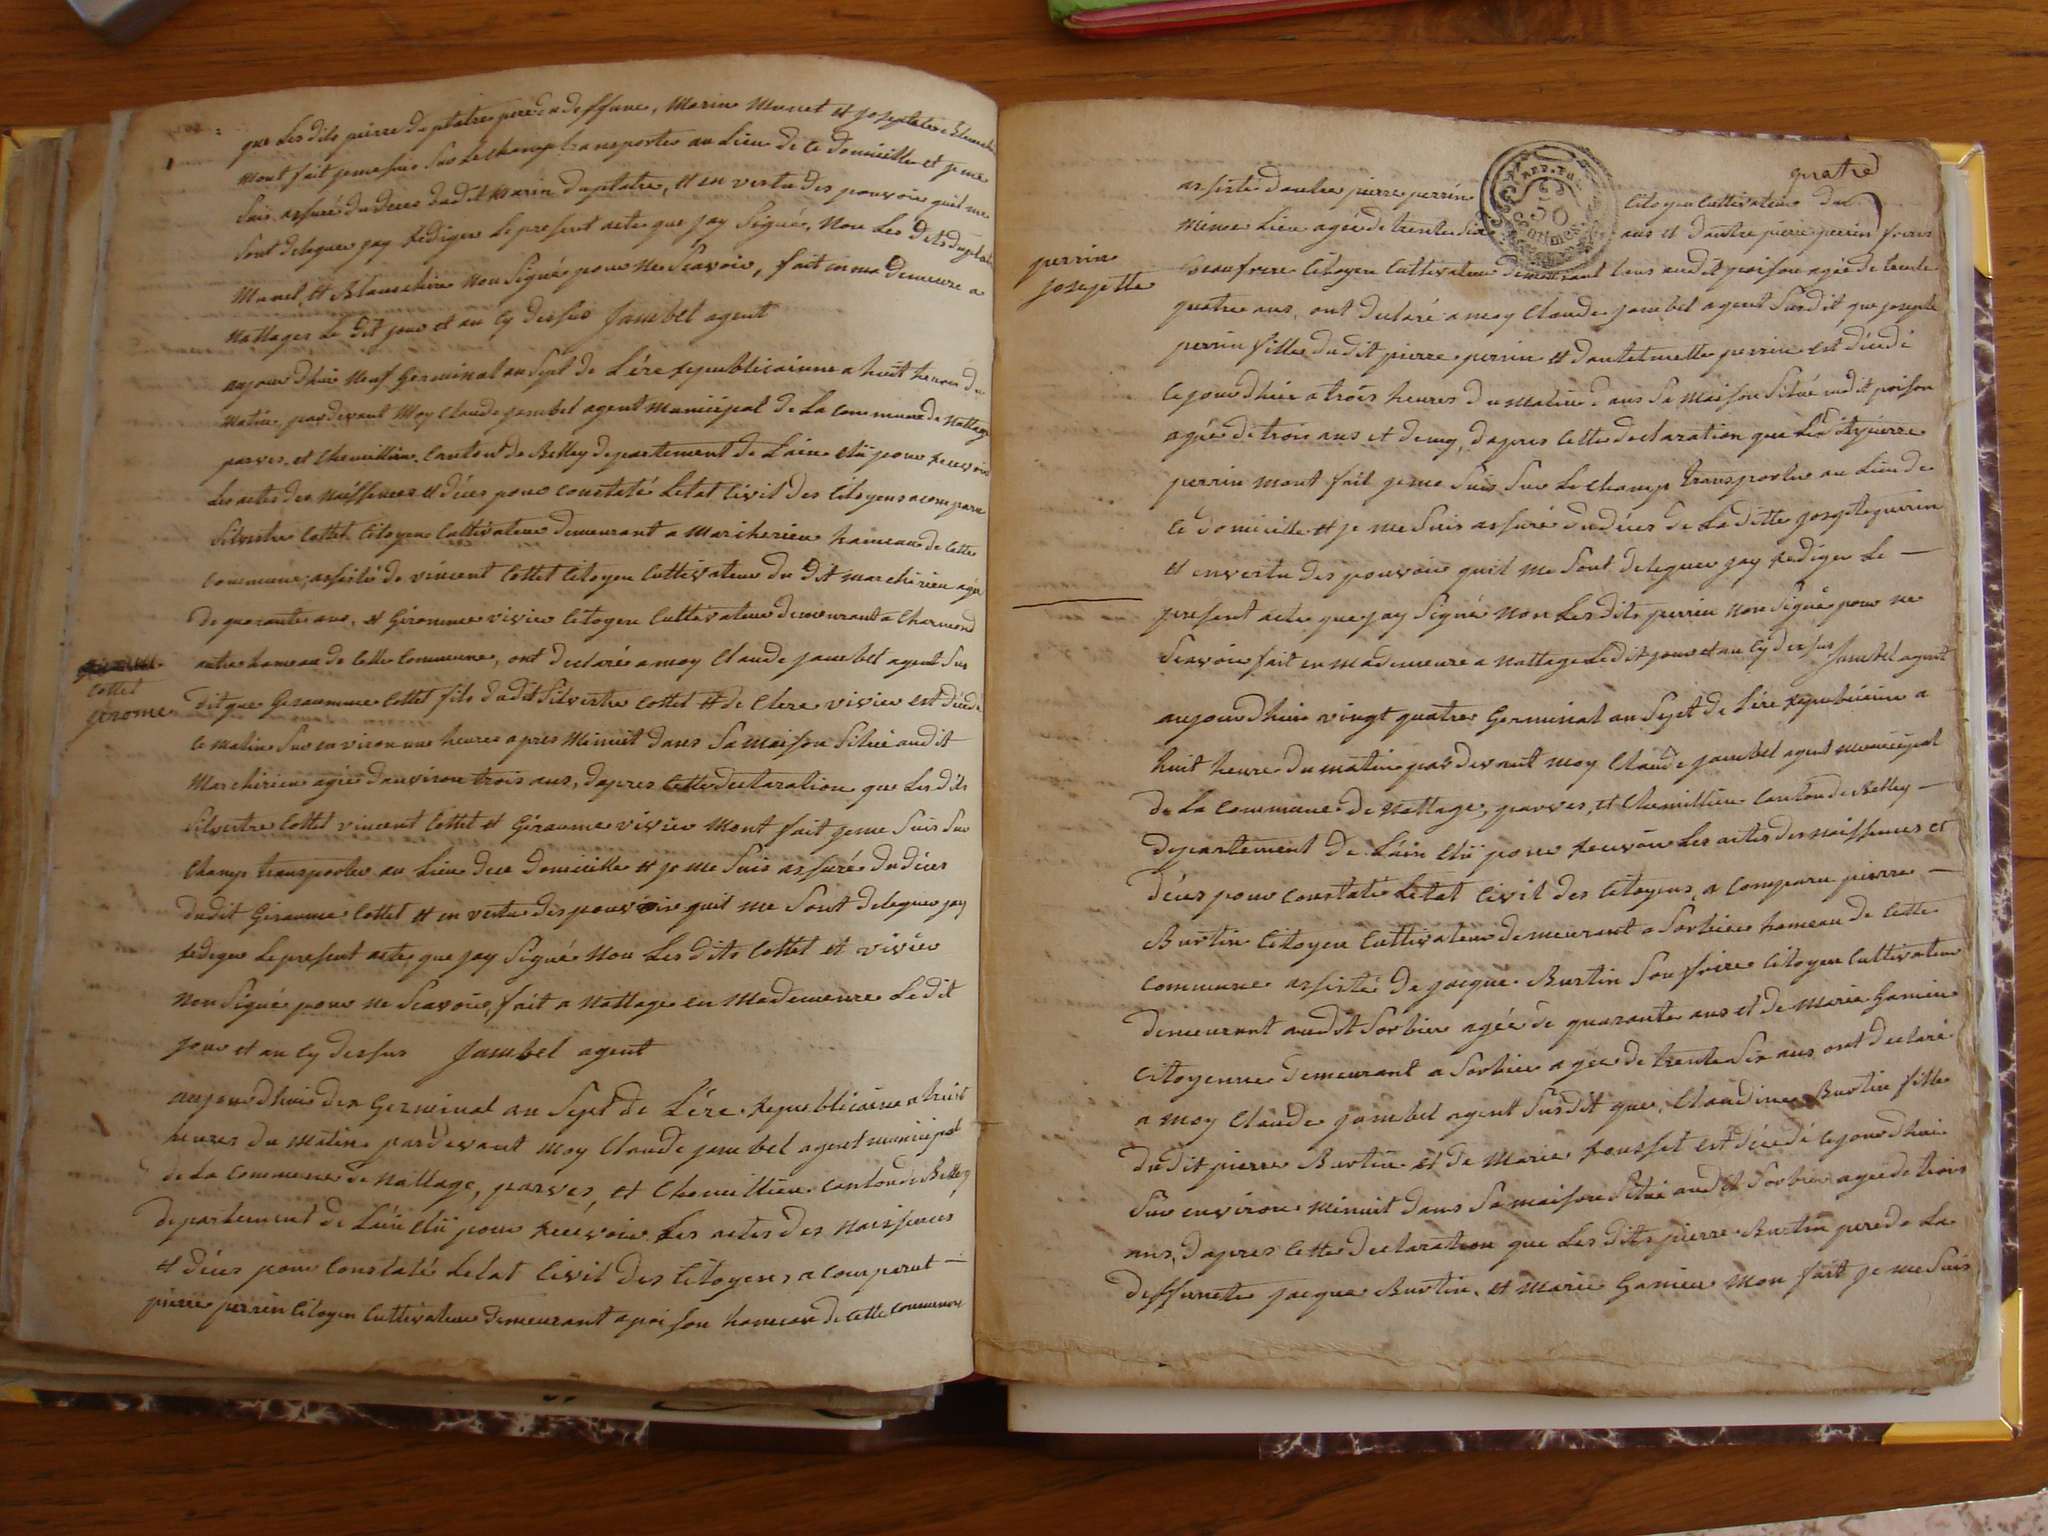 que les dits pierre duplatre pere du deffunt, Marin Munet et josephte Blanchin
mont fait je me suis sur le champ transporter au lieu de ce domicille et je me
suis assuré du deces dudit Marin duplatre, et en vertu des pouvoir quil me
sont deleguer jay rediger le present acte que jay signé, non les dits duplatre
Munet, et Blanchin non signé pour ne scavoir, fait en ma demeure a
Nattages le dit jour et an cy dessus Jambel agent
aujourdhuir neuf Germinal an sept de L'ére republicainne a huit heures du
matin, pardevant Moy Claude jambel agent municipal de la commune de Nattage
parves, et Chemillieu, Canton de Belley departement de Lain eluï pour recevoir
les actes des naissences et déces pour constaté Letat Civil des Citoyens a comparu
Silvestre Cottet Citoyen Cultivateur demeurant a Marchirieu hameau de cette
commune, assisté de vincent Cottet Citoyen Cultivateur du dit marchirieu agée
de quarante ans, et Giromme vivier Citoyen Cultivateur demeurant a Charmond
autre hameau de cette Commune, ont declaré a moy Claude jambel agent sus
Cottet
gerome
dit que Geraumme Cottet fils dudit Silvestre Cottet et de Clere vivier est décédé
ce matin sur environ une heures apres Minuit dans sa maison situé audit
Marchirieu agée d'environ trois ans, dapres cette declaration que les dits
Silvestre Cottet vincent Cottet et Giraume vivier mont fait je me suis sur
champ transporter au lieu de ce domicille et je me suis assuré du déces
dudit Giraume Cottet et en vertu des pouvoir quil me sont deleguer jay
rediger le present acte que jay signé non les dits Cottet et vivier
non signé pour ne scavoir, fait a Nattage en ma demeure le dit
jour et an cy dessus Jambel agent
aujourdhuir dix Germinal an sept de L'ére republicaine a huit
heures du matin pardevant moy Claude jambel agent municipal
de la commune de Nattage, parves, et Chemillieu canton de Belley
departement de Lain eluï pour recevoir les actes des naissences
et déces pour constaté Letat Civil des Citoyens a comparut —
pierre perrin Citoyen Cultivateur demeurant a poison hameau de cette commune
quatre
50
assisté dautre pierre perrin Citoyen Cultivateur du
meme lieu agée de trente six ans et dautre pierre perrin
perrin
josepette
beaufrere Citoyen Cultivateur demeurant tous audit poison agée de trente
quatre ans, ont declaré a moy Claude jambel agent susdit que josephte
perrin fille dudit pierre perrin et dantelmette perrin est décédé
ce jourdhuir a trois heures du matin dans sa maison situé audit poison
agée de trois ans et demy, dapres cette declaration que ledit pierre
perrin mont fait je me suis sur le champ transporter au lieu de
ce domicille et je me suis assuré du déces de la ditte josephte perrin
et en vertu des pouvoir quil me sont deleguer jay rediger le —
present acte que jay signé non les dits perrin non signé pour ne
scavoir fait en ma demeure a Nattage le dit jour et an cy dessus Jambel agent
aujourdhuir vingt quatre Germinal an sept de L'ére republicaine a
huit heure du matin pardevant moy Claude jambel agent municipal
de la commune de Nattage, parves, et Chemillieu canton de Belley —
departement de Lain eluï pour recevoir les actes des naissences et
déces pour constaté Letat Civil des Citoyens, a comparu pierre —
Burtin Citoyen Cultivateur demeurant a Sorbier hameau de cette
commune assisté de jacque Burtin son frere Citoyen Cultivateur
demeurant audit Sorbier agée de quarante ans et de marie Gamin
Citoyenne demeurant a Sorbier agée de trente six ans, ont declaré
a moy Claude jambel agent susdit que, Claudine Burtin fille
dudit pierre Burtin et de Marie rousset est décédé ce jourdhuir
sur environ minuit dans sa maison situé audit Sorbier agée de trois
ans, dapres cette declaration que les dits pierre Burtin pere de la
deffunete jacque Burtin, et marie Gamin mon fait je me suis